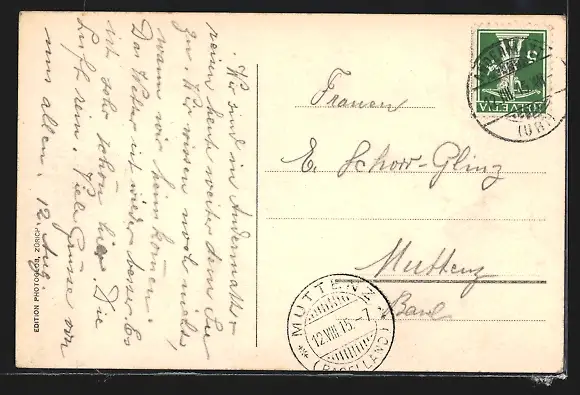 Wir sind in Andermatt &
reisen heute weiter dem See
zu. Wir wissen noch nicht,
wann wir heim kommen.
Das Wetter ist wieder besser. Es
ist sehr schön hier. Die
Luft rein. Viele Grüsse von
uns allen. 12. Aug.
EDITION PHOTOGLOB, ZÜRICH
Frauen
E. Schorr-Glinz
Muttenz
Basel
HELVETIA
5
(URI)
MUTTENZ
12.VIII.15.-7
(BASELLAND)